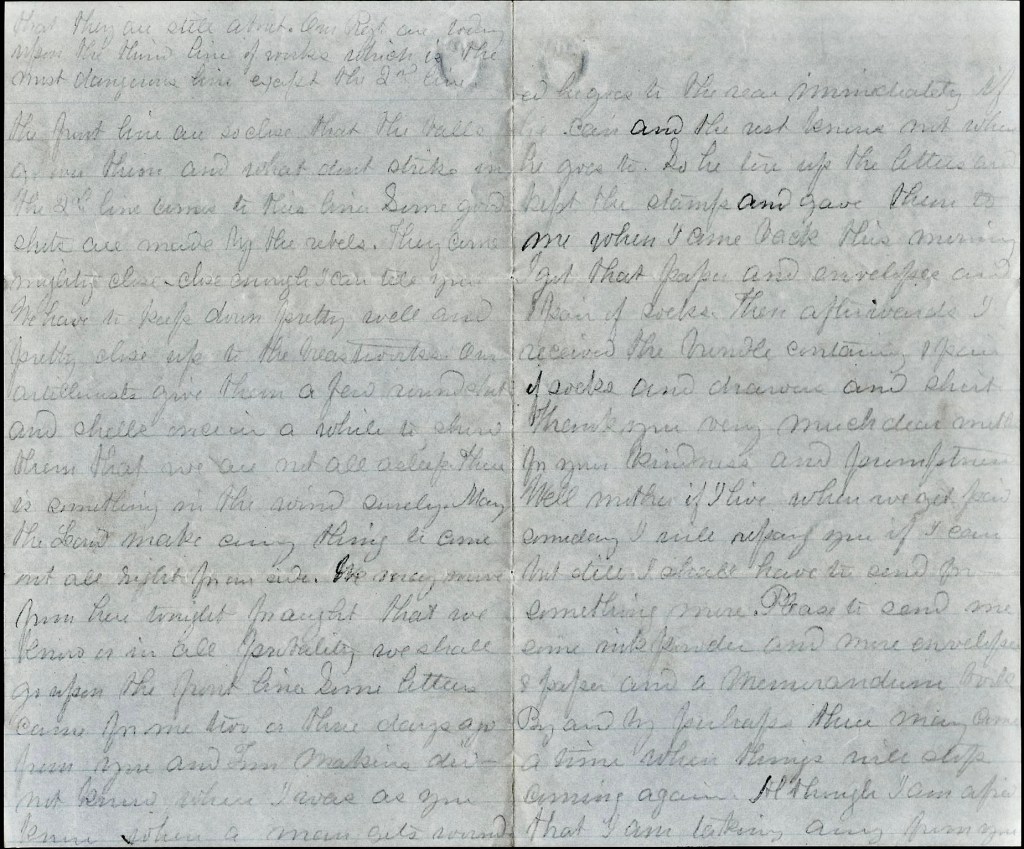 that they are still about. Our Regt are today
upon the third line of works which is the
most dangerous line except the 2nd line
the front line are so close that the balls
go over them and what dont strike in
the 2nd line comes to this line Some good
shots are made by the rebels. They come
mighty close - close enough I can tell you
We have to keep down pretty well and
pretty close up to the breastworks. Our
artillerists give them a few round shot
and shells once in a while to show
them that we are not all asleep There
is something in the wind surely. May
the Lord make every thing to come
out all right for our side. We may move
from here tonight for aught that we
know or in all probality we shall
go upon the front line Some letters
came for me two or three days ago
from you and Tom Makins did
not know where I was as you
know when a man gets wound
ed he goes to the rear immediately if
he can and the rest knows not where
he goes to. So he tore up the letters and
kept the stamps and gave them to
me when I came back this morning
I got that paper and envelopes and
1 pair of socks. Then afterwards I
received the bundle containg 1 pair
of socks and drawers and shirt
Thank you very much dear mother
for your kindness and promptness
Well mother if I live when we get paid
someday I will repay you if I can
but still I shall have to send for
something more. Please to send me
some ink powder and more envelopes
& paper and a Memorandum book
By and by perhaps there may come
a time when things will stop
coming again. Although I am afraid
that I am taking away from you